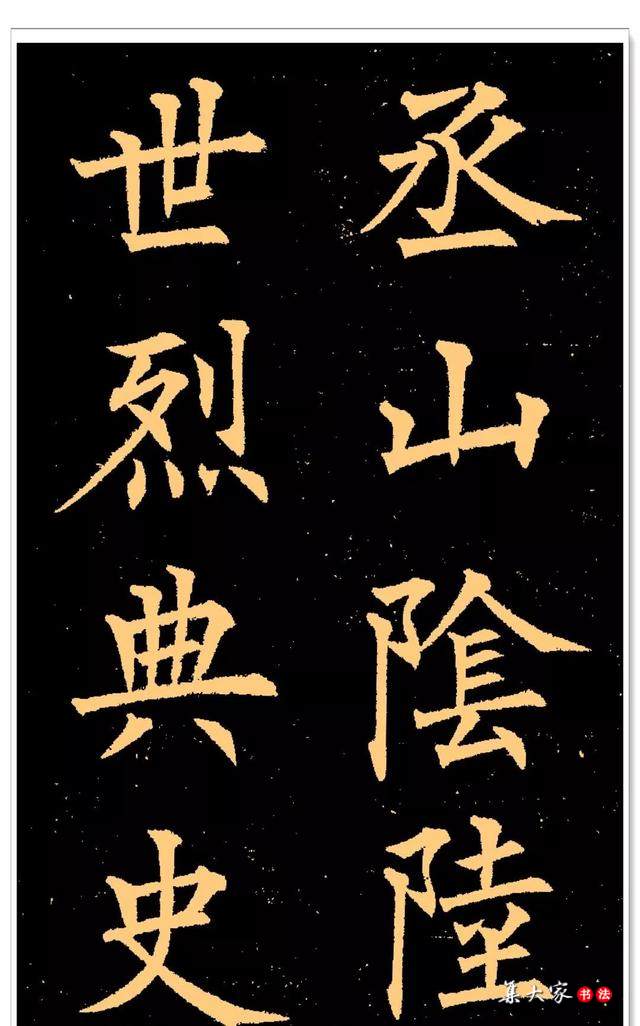 丞山陰陸
世烈典史
集大家书法